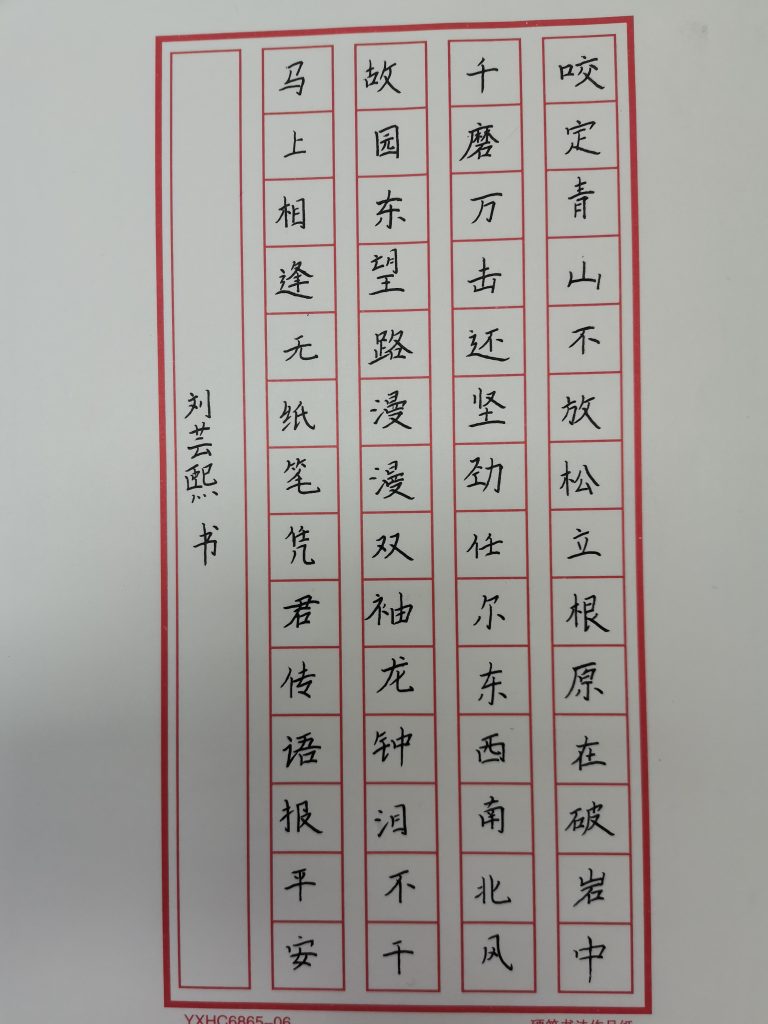 咬定青山不放松立根原在破岩中
千磨万击还坚劲任尔东西南北风
故园东望路漫漫双袖龙钟泪不干
马上相逢无纸笔凭君传语报平安
刘芸熙 书
YXHC6865-06
硬笔书法作品纸